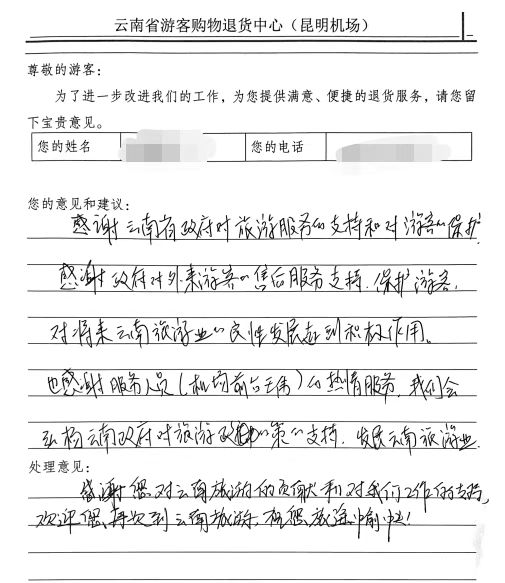 云南省游客购物退货中心（昆明机场）
尊敬的游客：
为了进一步改进我们的工作，为您提供满意、便捷的退货服务，请您留
下宝贵意见。
您的姓名 您的电话
您的意见和建议：
感谢云南省政府对旅游服务的支持和对游客的保护.
感谢政府对外来游客的售后服务支持.保护游客.
对将来云南旅游业的良性发展起到积极作用。
也感谢服务人员(机场前台王伟)的热情服务.我们会
弘杨云南政府对旅游政的策的支持.发展云南旅游业.
处理意见：
感谢您对云南旅游的贡献和对我们工作的支持,
欢迎您再次到云南旅游,祝您旅途愉快!